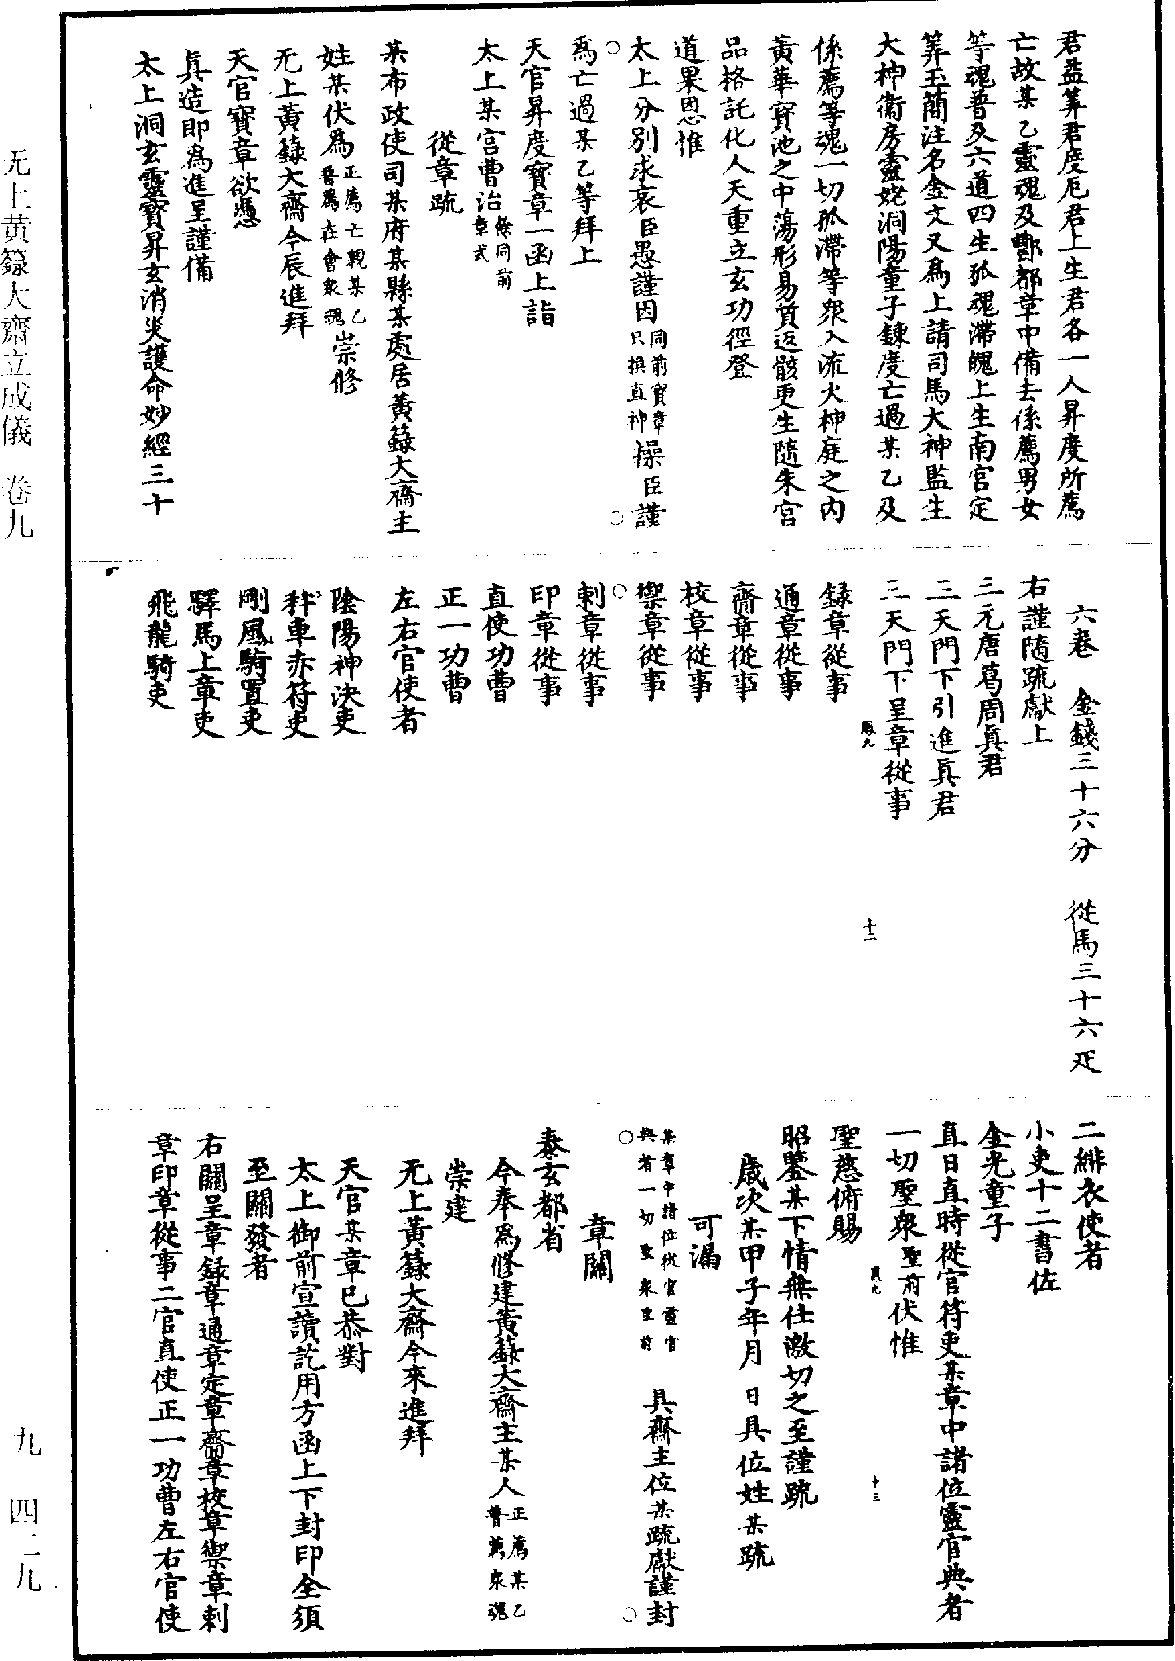 君益筭君度厄君上生君各一人昇度所薦
亡故某乙靈魂及酆都章中備去係薦男女
等魂普及六道四生孤魂滯魄上生南宮定
筭玉簡注名金文又為上請司馬大神監生
大神衛房靈妣洞陽童子鍊度亡過某乙及
係薦等魂一切孤滯等衆入流火神庭之內
黃華寶池之中蕩形易質返骸更生隨朱宮
品格託化人天重立玄功徑登
道果恩惟
太上分別求哀臣愚謹因同前寶章只換直神操臣謹
為亡過某乙等拜上
天官昇度寶章一函上詣
太上某宮曹治餘同前章式
從章疏
某布政使司某府某縣某處居黃籙大齋主
姓某伏為正為亡親某乙普為在會衆魂崇修
无上黃籙大齋今辰進拜
天官寶章欲憑
真造即為進呈謹備
太上洞玄靈寶昇玄消災護命妙經三十
六卷　金錢三十六分　從馬三十六疋
右謹隨疏獻上
三元唐葛周真君
三天門下引進真君
三天門下呈章從事
十二
錄章從事
通章從事
齋章從事
校章從事
禦章從事
刺章從事
印章從事
直使功曹
正一功曹
左右官使者
陰陽神決吏
科車赤符吏
剛風騎置吏
驛馬上章吏
飛龍騎吏
二緋衣使者
小吏十二書佐
金光童子
直日直時從官符吏某章中諸位靈官典者
一切聖衆聖前伏惟
十三
聖慈俯賜
昭鑒某下情無任激切之至謹疏
歲次某甲子年月　日具位姓某疏
可漏
某章中諸位從官靈官典者一切聖衆聖前　具齋主位某疏獻謹封
章關
泰玄都省
今奉為修建黃籙大齋主某人正薦某乙普薦衆魂
崇建
无上黃籙大齋今來進拜
天官某章已恭對
太上御前宣讀訖用方函上下封印全須
至關發者
右關呈章錄章通章定章齋章校章禦章刺
章印章從事二官直使正一功曹左右官使
无上黄籙大齋立成儀　卷九
九　四二九